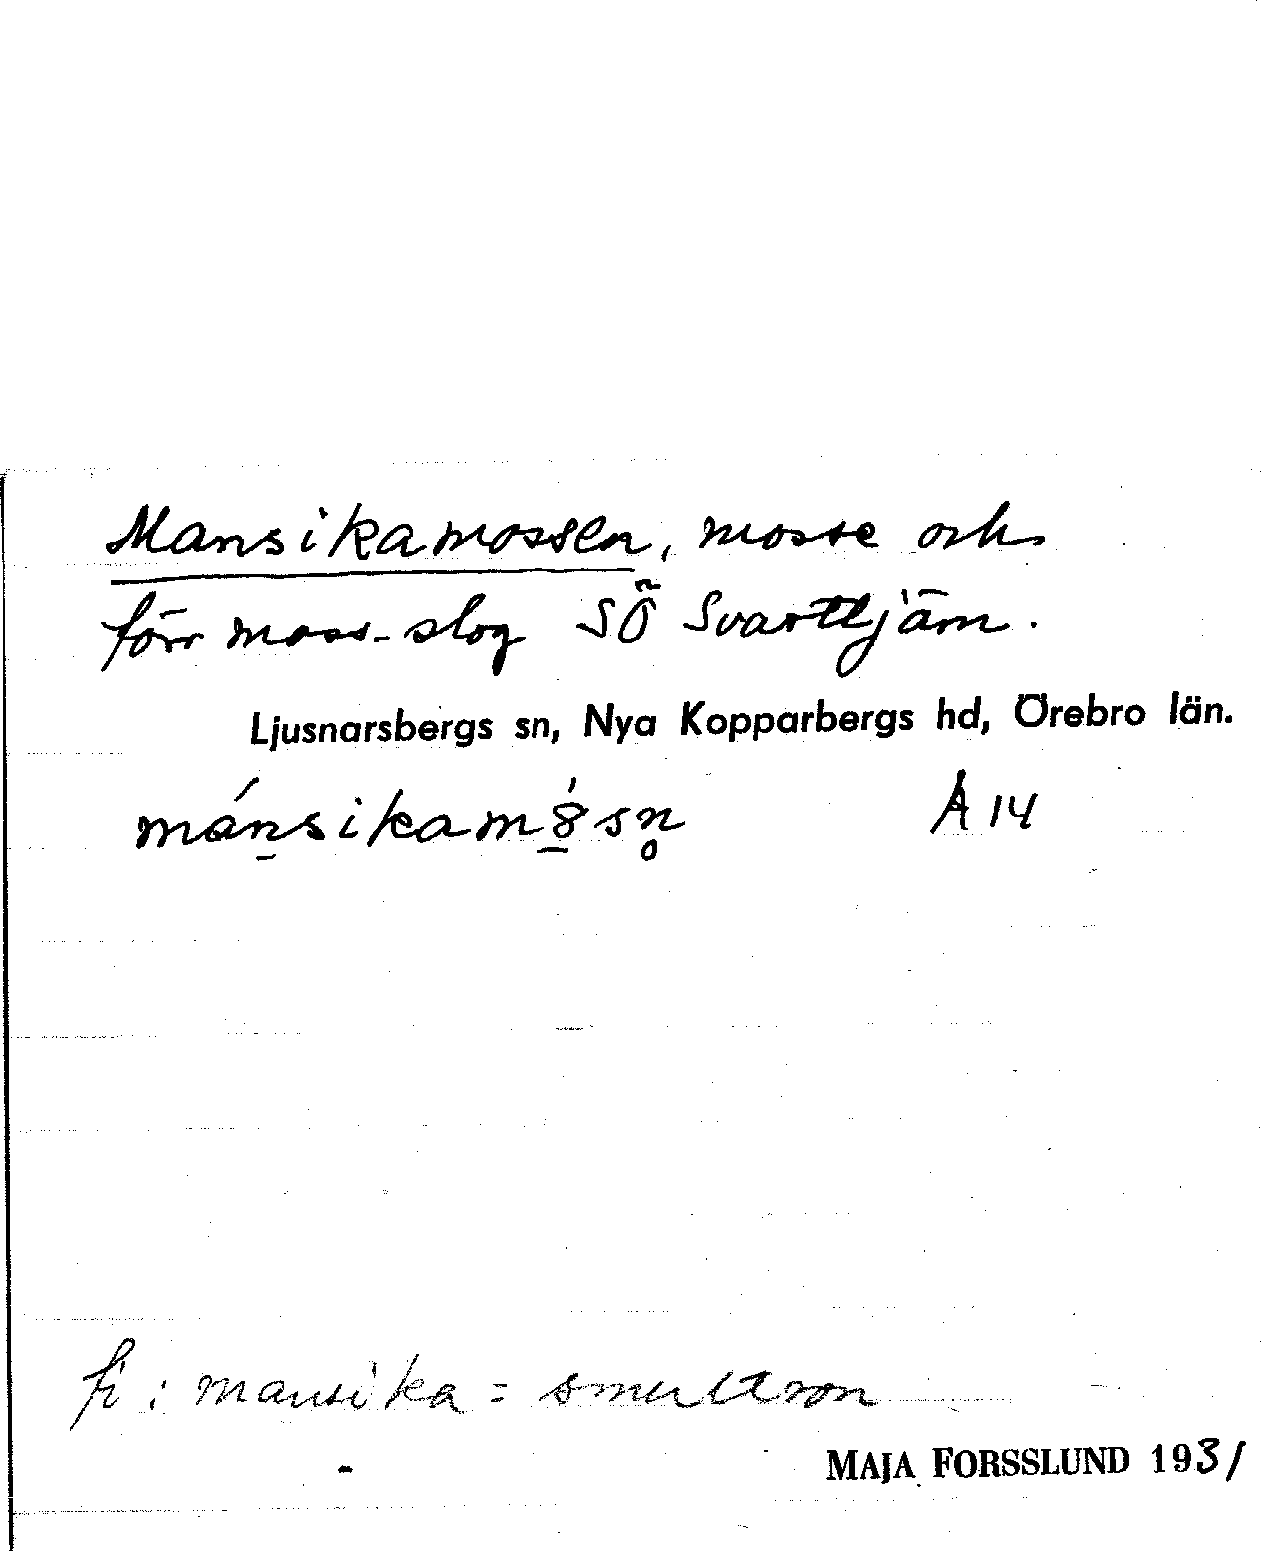 Mansikamossen, mosse och
förr moss-slog SÖ Svarttjärn.
Ljusnarsbergs sn, Nya Kopparbergs hd, Örebro län.
mánsikam8́sn̥ A 14
fi: mansika = smultron
MAJA FORSSLUND 1931